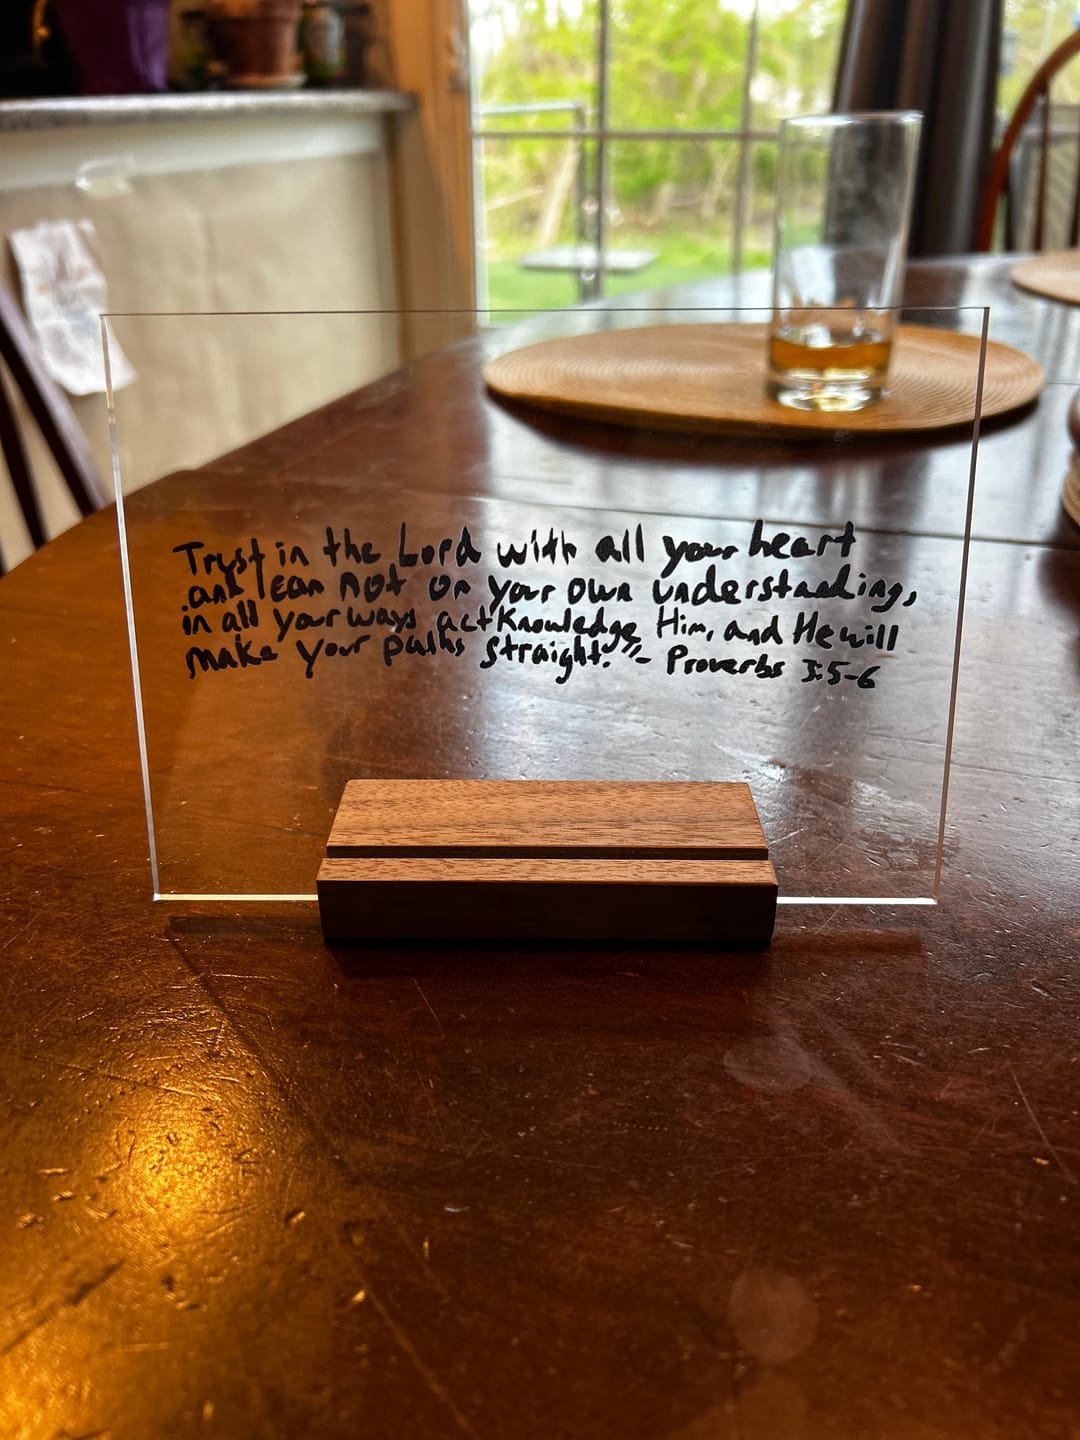 Trust in the Lord with all your heart
and lean not on your own understanding,
in all your ways acknowledge Him, and He will
make your paths straight." - Proverbs 3:5-6